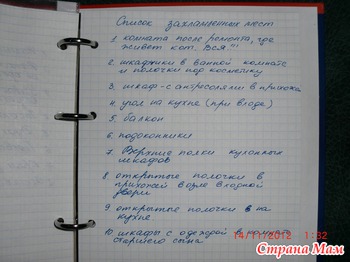 Список захламленных мест
1. комната после ремонта, где
живёт кот. Вся!!!
2. шкафчики в ванной комнате
и полочки под косметику
3. шкаф-с антресолями в прихож
4. угол на кухне (при входе)
5. балкон
6. подоконники
7. Верхние полки кухонных
шкафов
8. открытые полочки в
прихожей возле входной
двери
9. открытые полочки на
кухне
10. шкафы с одеждой в комнате
старшего сына
14/11/2012 1:32
Страна Мам